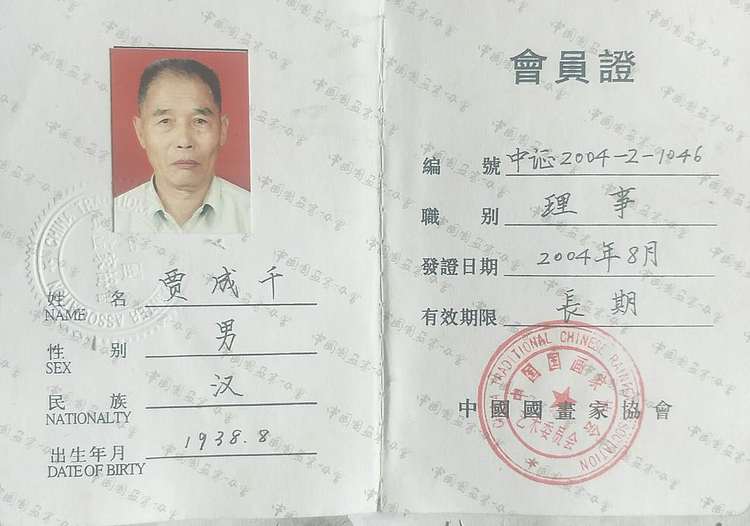 姓 名 贾成千
NAME
性 别 男
SEX
民 族 汉
NATIONALTY
出生年月 1938.8
DATE OF BIRTY
會員證
编 號 中证2004-2-1046
職 别 理事
發證日期 2004年8月
有效期限 長期
中國國畫家協會